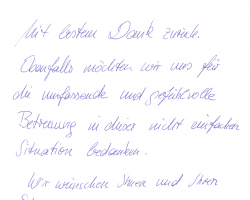 Mit bestem Dank zurück.
Ebenfalls möchten wir uns für
die umfassende und gefühlvolle
Betreuung in dieser nicht einfachen
Situation bedanken.
Wir wünschen Ihnen und Ihren